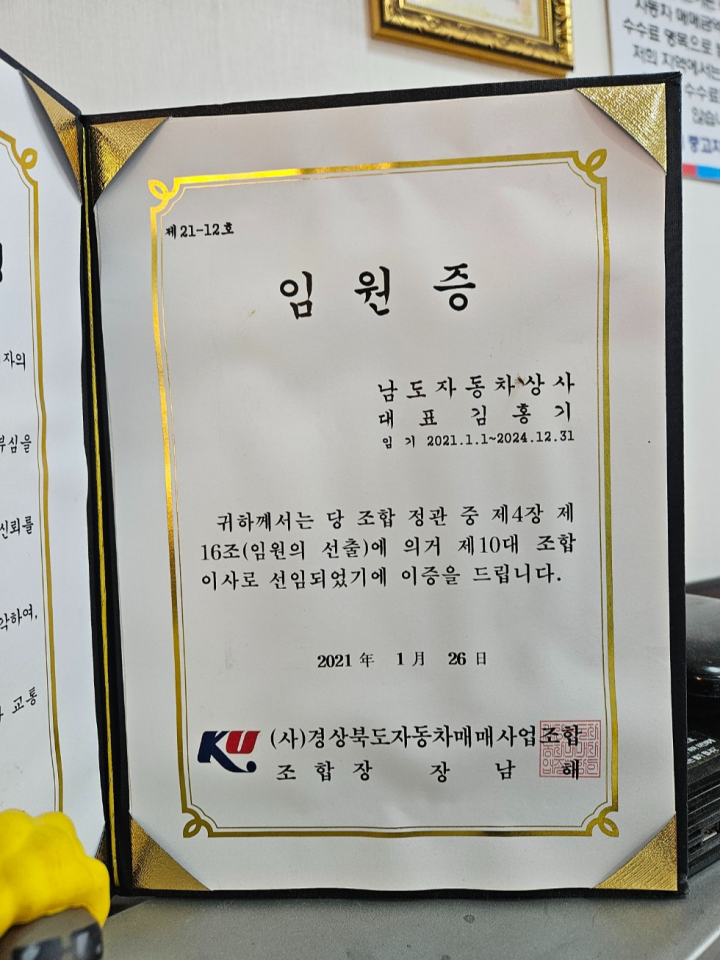 제 21-12호
임 원 증
남 도 자 동 차 상 사
대 표 김 홍 기
임 기 2021.1.1~2024.12.31
귀하께서는 당 조합 정관 중 제4장 제
16조(임원의 선출)에 의거 제10대 조합
이사로 선임되었기에 이증을 드립니다.
2021 年 1 月 26 日
KU (사)경상북도자동차매매사업조합
조 합 장 장 남 해
자의
부심을
신뢰를
교통
자동차 매매금액
수수료 명목으로
저희 지역에서는
수수료
않습
중고차